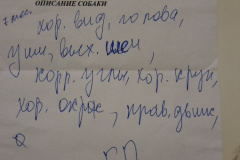 ОПИСАНИЕ СОБАКИ
7 мес. хор. вид, голова,
уши, вых. шеи,
корр. углы, хор. круп,
хор. окрас, прав. движ.,